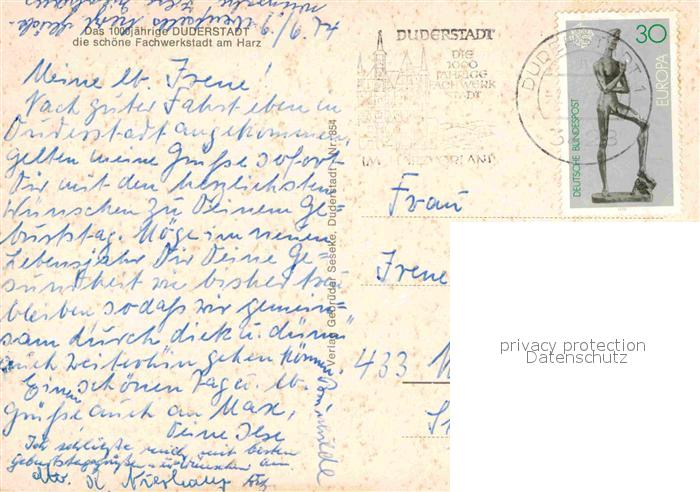 Das 1000jährige DUDERSTADT
die schöne Fachwerkstadt am Harz
Meine lb. Irene!
Nach guter Fahrt eben in
Duderstadt angekommen,
gelten meine Grüße sofort
Dir mit den herzlichsten
Wünschen zu Deinem Ge-
burtstag. Möge im neuen
Lebensjahr Dir Deine Ge-
sundheit wie bisher treu
bleiben sodaß wir gemein-
sam durch dick u. dünn
auch weiterhin gehen können.
Einen schönen Tag u. lb.
Grüße auch an Max,
Deine Ilse
Ich schließe mich mit besten
Geburtstagsgrüßen u. Wünschen an
Verlag Gebrüder Seseke, Duderstadt Nr. 654
DUDERSTADT
DIE
1000
JÄHRIGE
FACHWERK
STADT
IM HARZVORLAND
DUDERSTADT 1
30
EUROPA
DEUTSCHE BUNDESPOST
Frau
Irene
433
privacy protection
Datenschutz